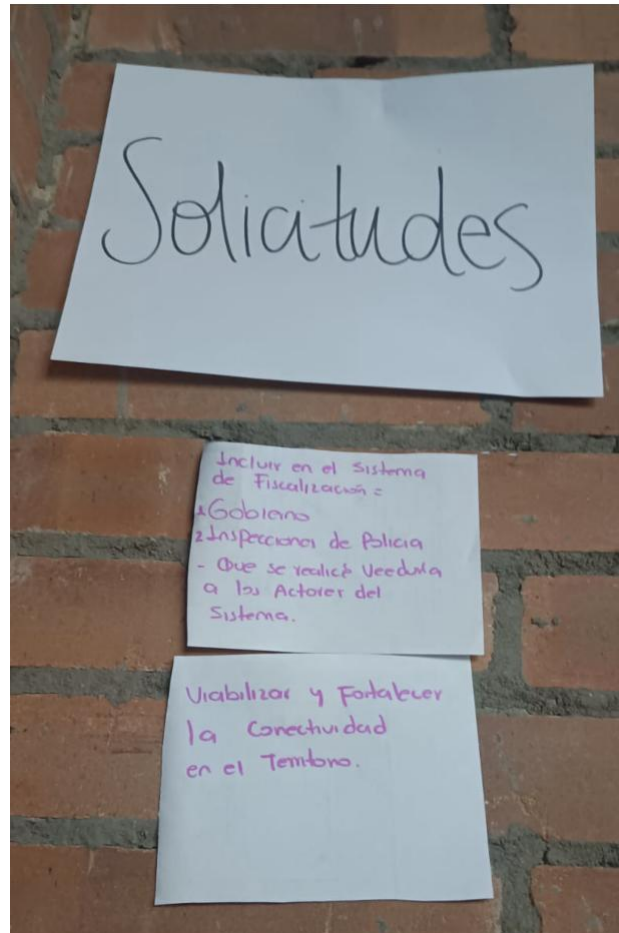 Solicitudes
Incluir en el Sistema
de Fiscalización =
1 Gobierno
2 Inspecciones de Policia
- Que se realice Veeduria
a los Actores del
Sistema.
Viabilizar y Fortalecer
la Conectividad
en el Territorio.